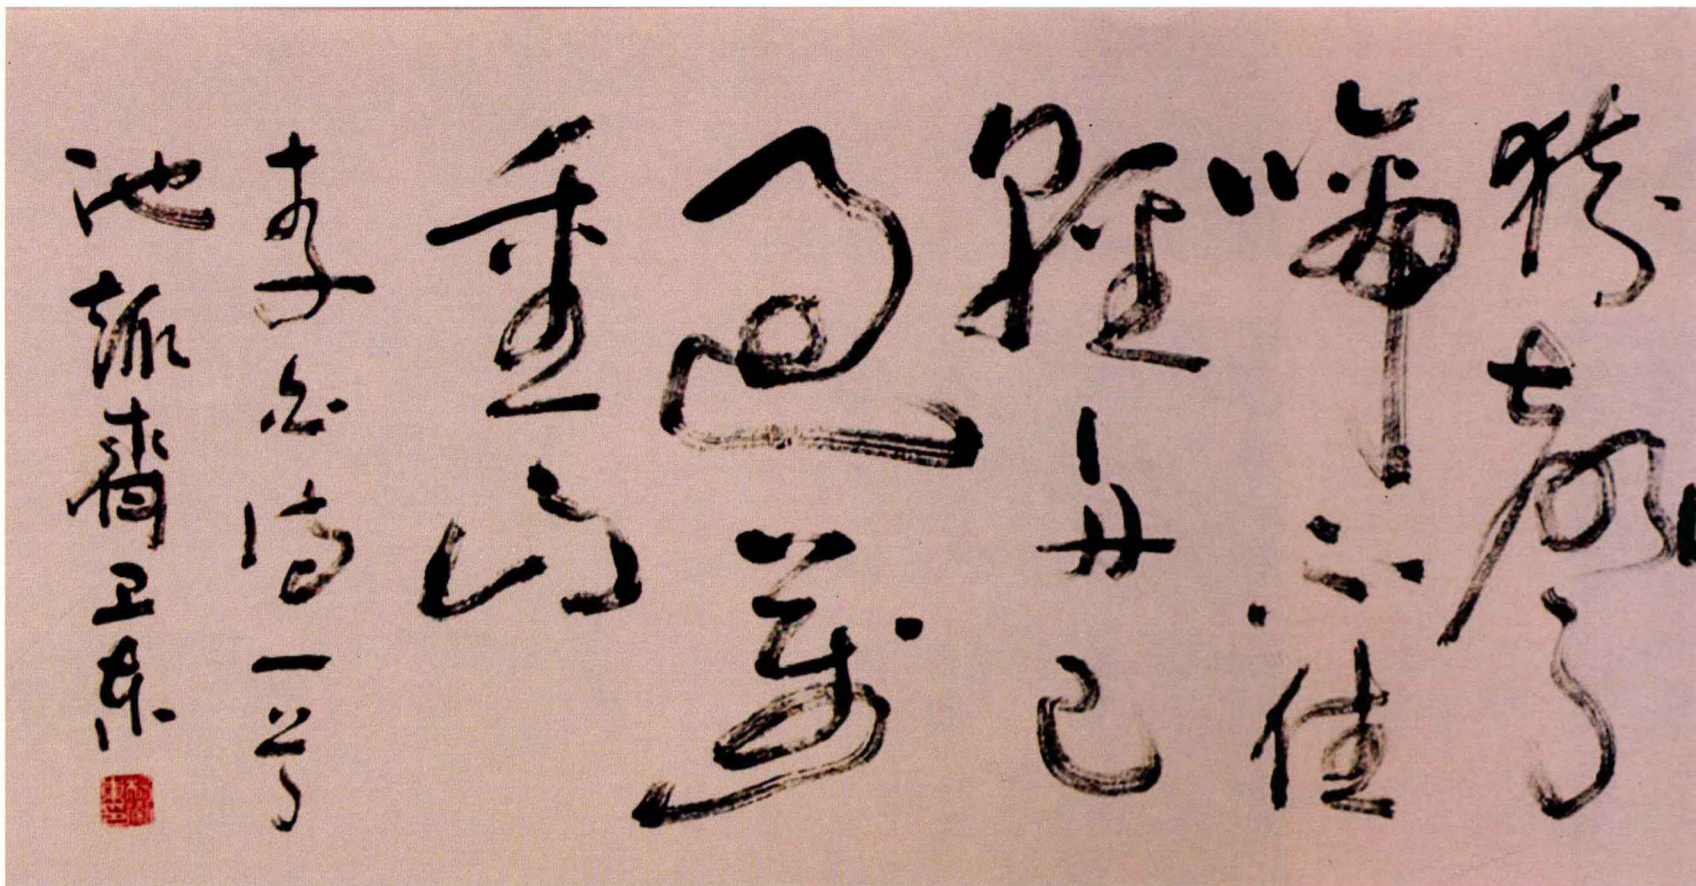 猿聲
啼不住
輕舟已
過萬
重山
李白诗一首
池齋卫东